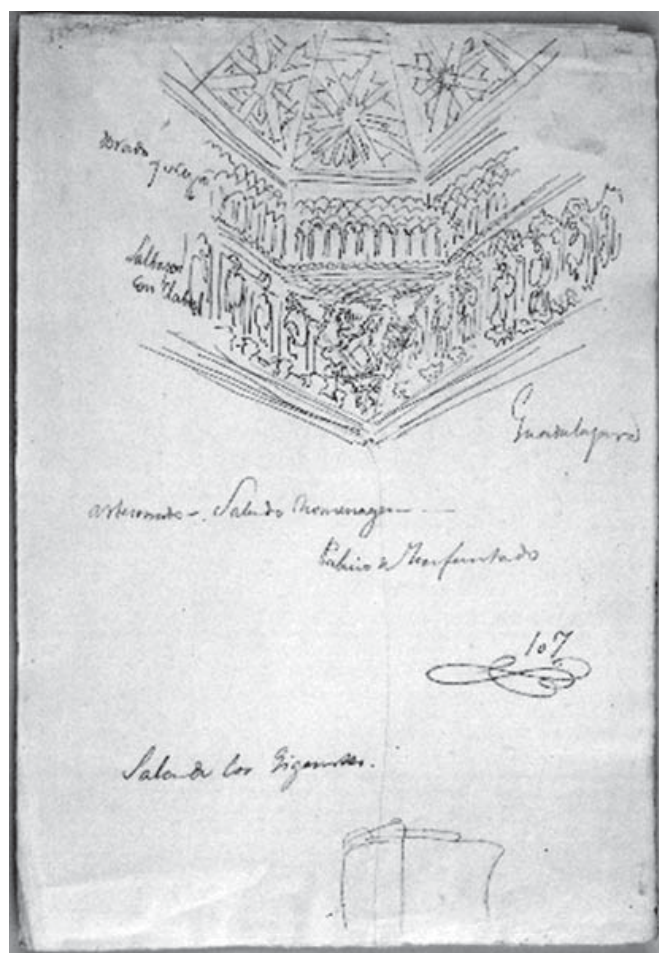 Dorado
y 
Salbages
con
Guadalajara
artesonado - Sala de homenage
Palacio de Ynfantado
107
Sala de los Gigantes.